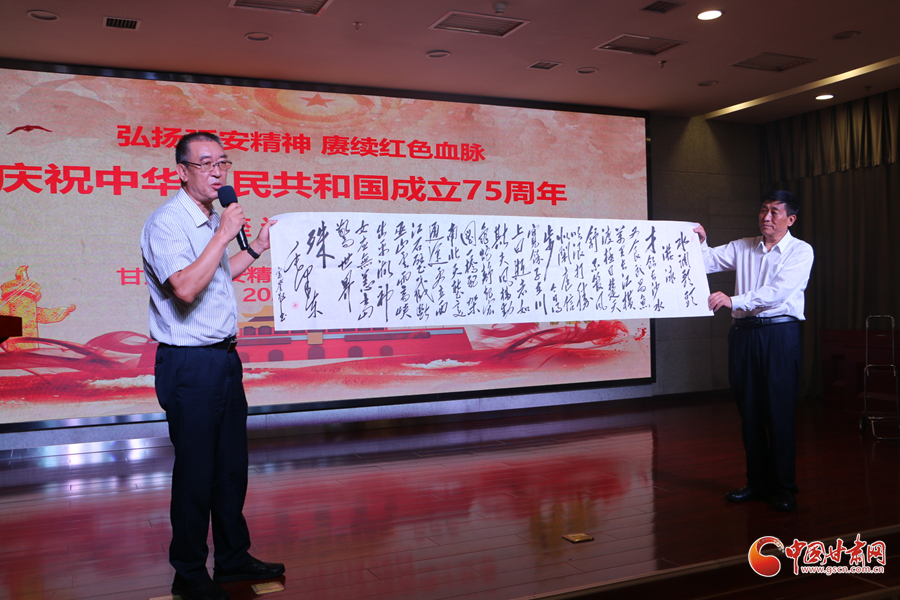 弘扬 安精神 赓续红色血脉
庆祝中华 民共和国成立75周年
甘 安精
20
水调歌头
游泳
才饮长沙水
又食武昌鱼
万里长江横
渡极目楚天
舒不管风
吹浪打胜
似闲庭信
步今日得
宽余子在川
上曰逝者如
斯夫风樯动
龟蛇静起宏
图一桥飞架
南北天堑变
通途更立西
江石壁截断
巫山云雨高峡
出平湖神
女应无恙当
惊世界
殊
毛泽东
中国甘肃网
www.gscn.com.cn